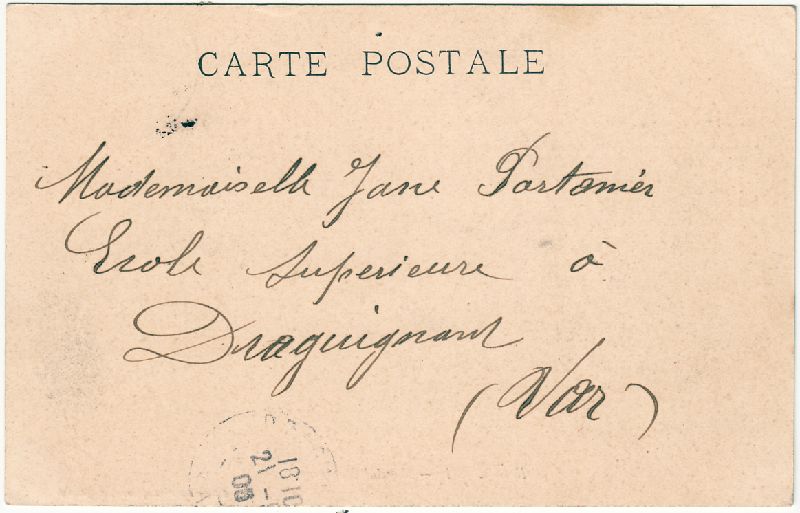 CARTE POSTALE
Mademoiselle Jane Partanier
Ecole Superieure à
Draguignant
(Var)
18 10
21